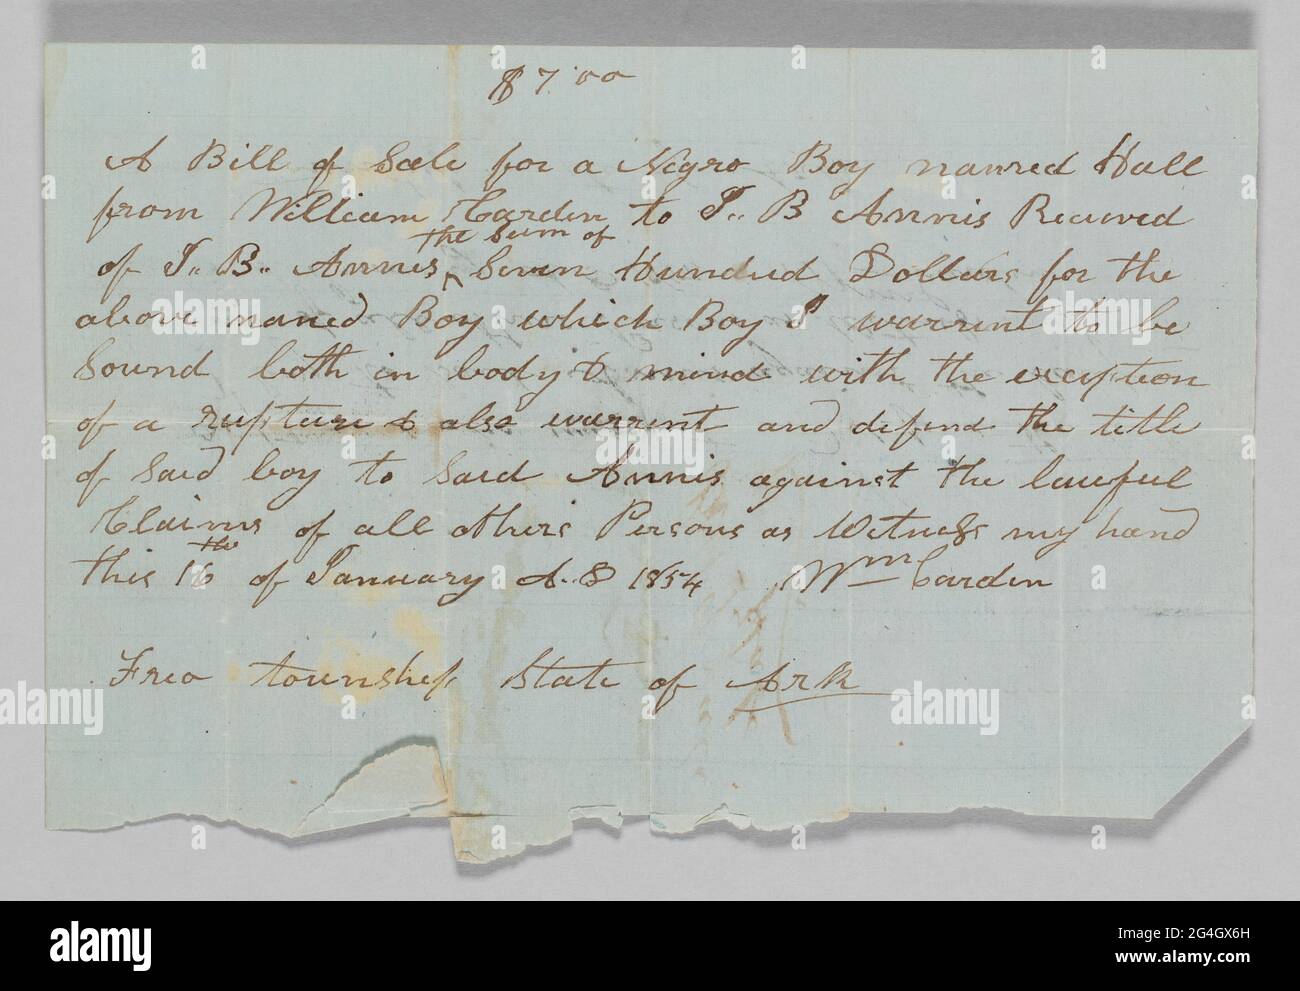 $7.00
A Bill of Sale for a Negro Boy named Hall
from William Carden to J.. B Annis Recieved
the sum of
of J.. B.. Annis ^ Seven Hundred Dollars for the
above named Boy which Boy I warrent to be
Sound both in body & mind with the exception
of a rupture & also warrent and defend the title
of Said boy to Said Annis against the lawful
Claims of all others Persons as Witness my hand
this 16th of January A..D 1854 Wm Carden
Freo township State of Ark
alamy
Image ID: 2G4GX6H
www.alamy.com